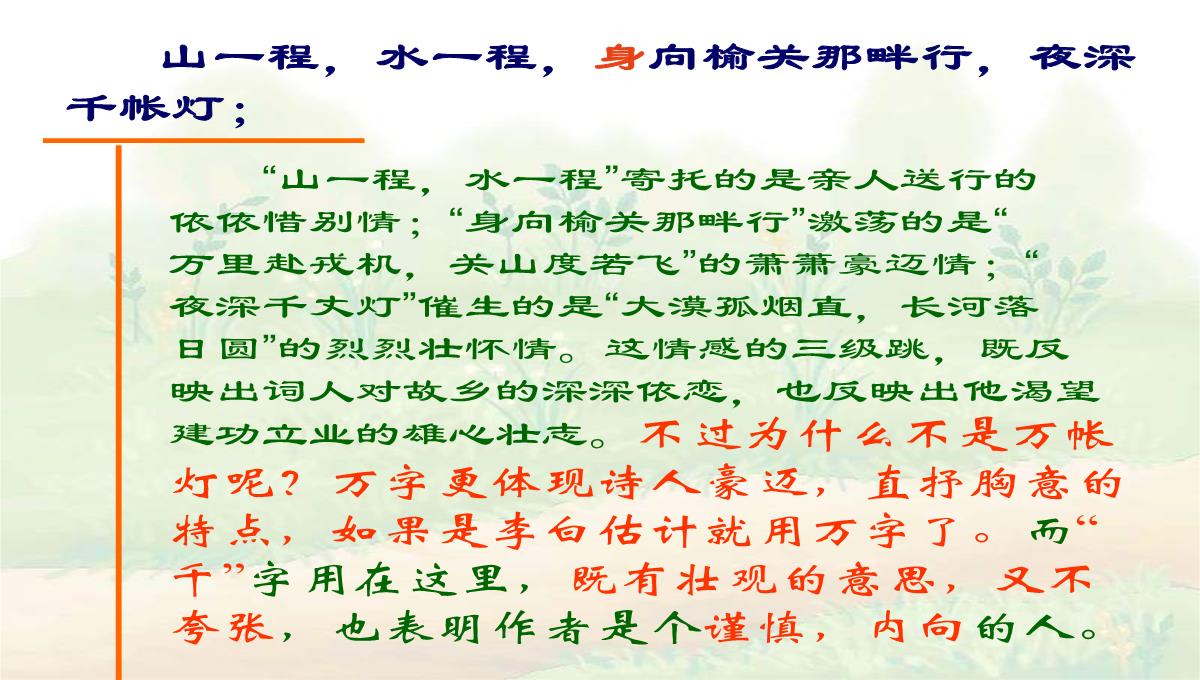 山一程，水一程，身向榆关那畔行，夜深
千帐灯；
“山一程，水一程”寄托的是亲人送行的
依依惜别情；“身向榆关那畔行”激荡的是“
万里赴戎机，关山度若飞”的萧萧豪迈情；“
夜深千丈灯”催生的是“大漠孤烟直，长河落
日圆”的烈烈壮怀情。这情感的三级跳，既反
映出词人对故乡的深深依恋，也反映出他渴望
建功立业的雄心壮志。不过为什么不是万帐
灯呢？万字更体现诗人豪迈，直抒胸意的
特点，如果是李白估计就用万字了。而“
千”字用在这里，既有壮观的意思，又不
夸张，也表明作者是个谨慎，内向的人。